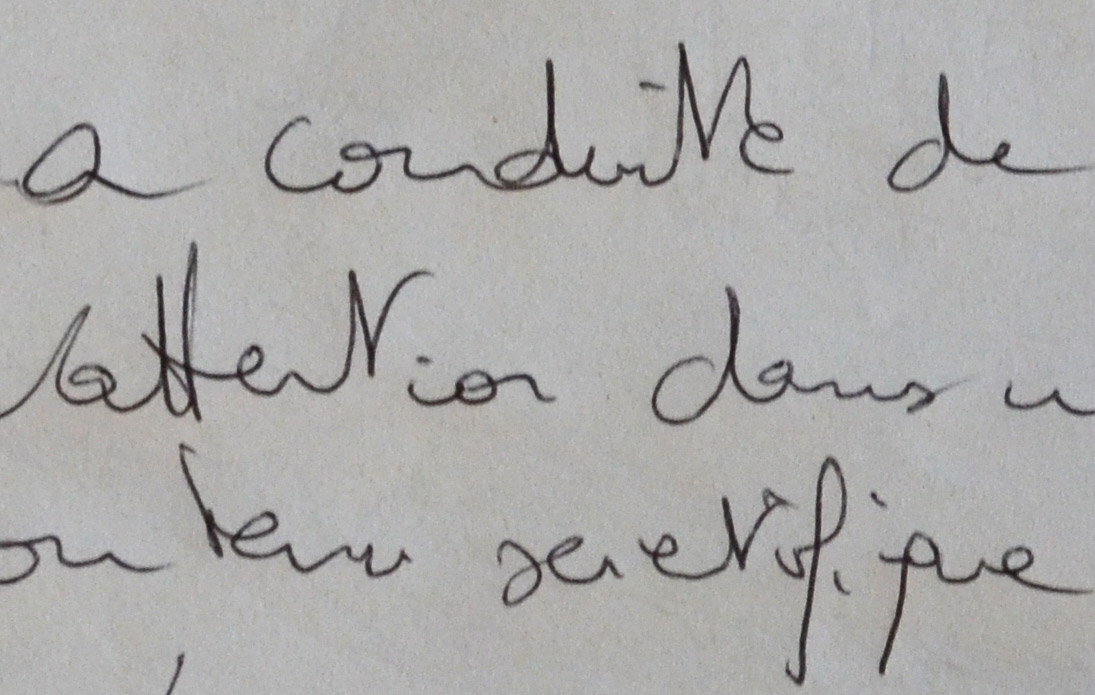 a conduite de
l'attention dans u
ontenu scientifique